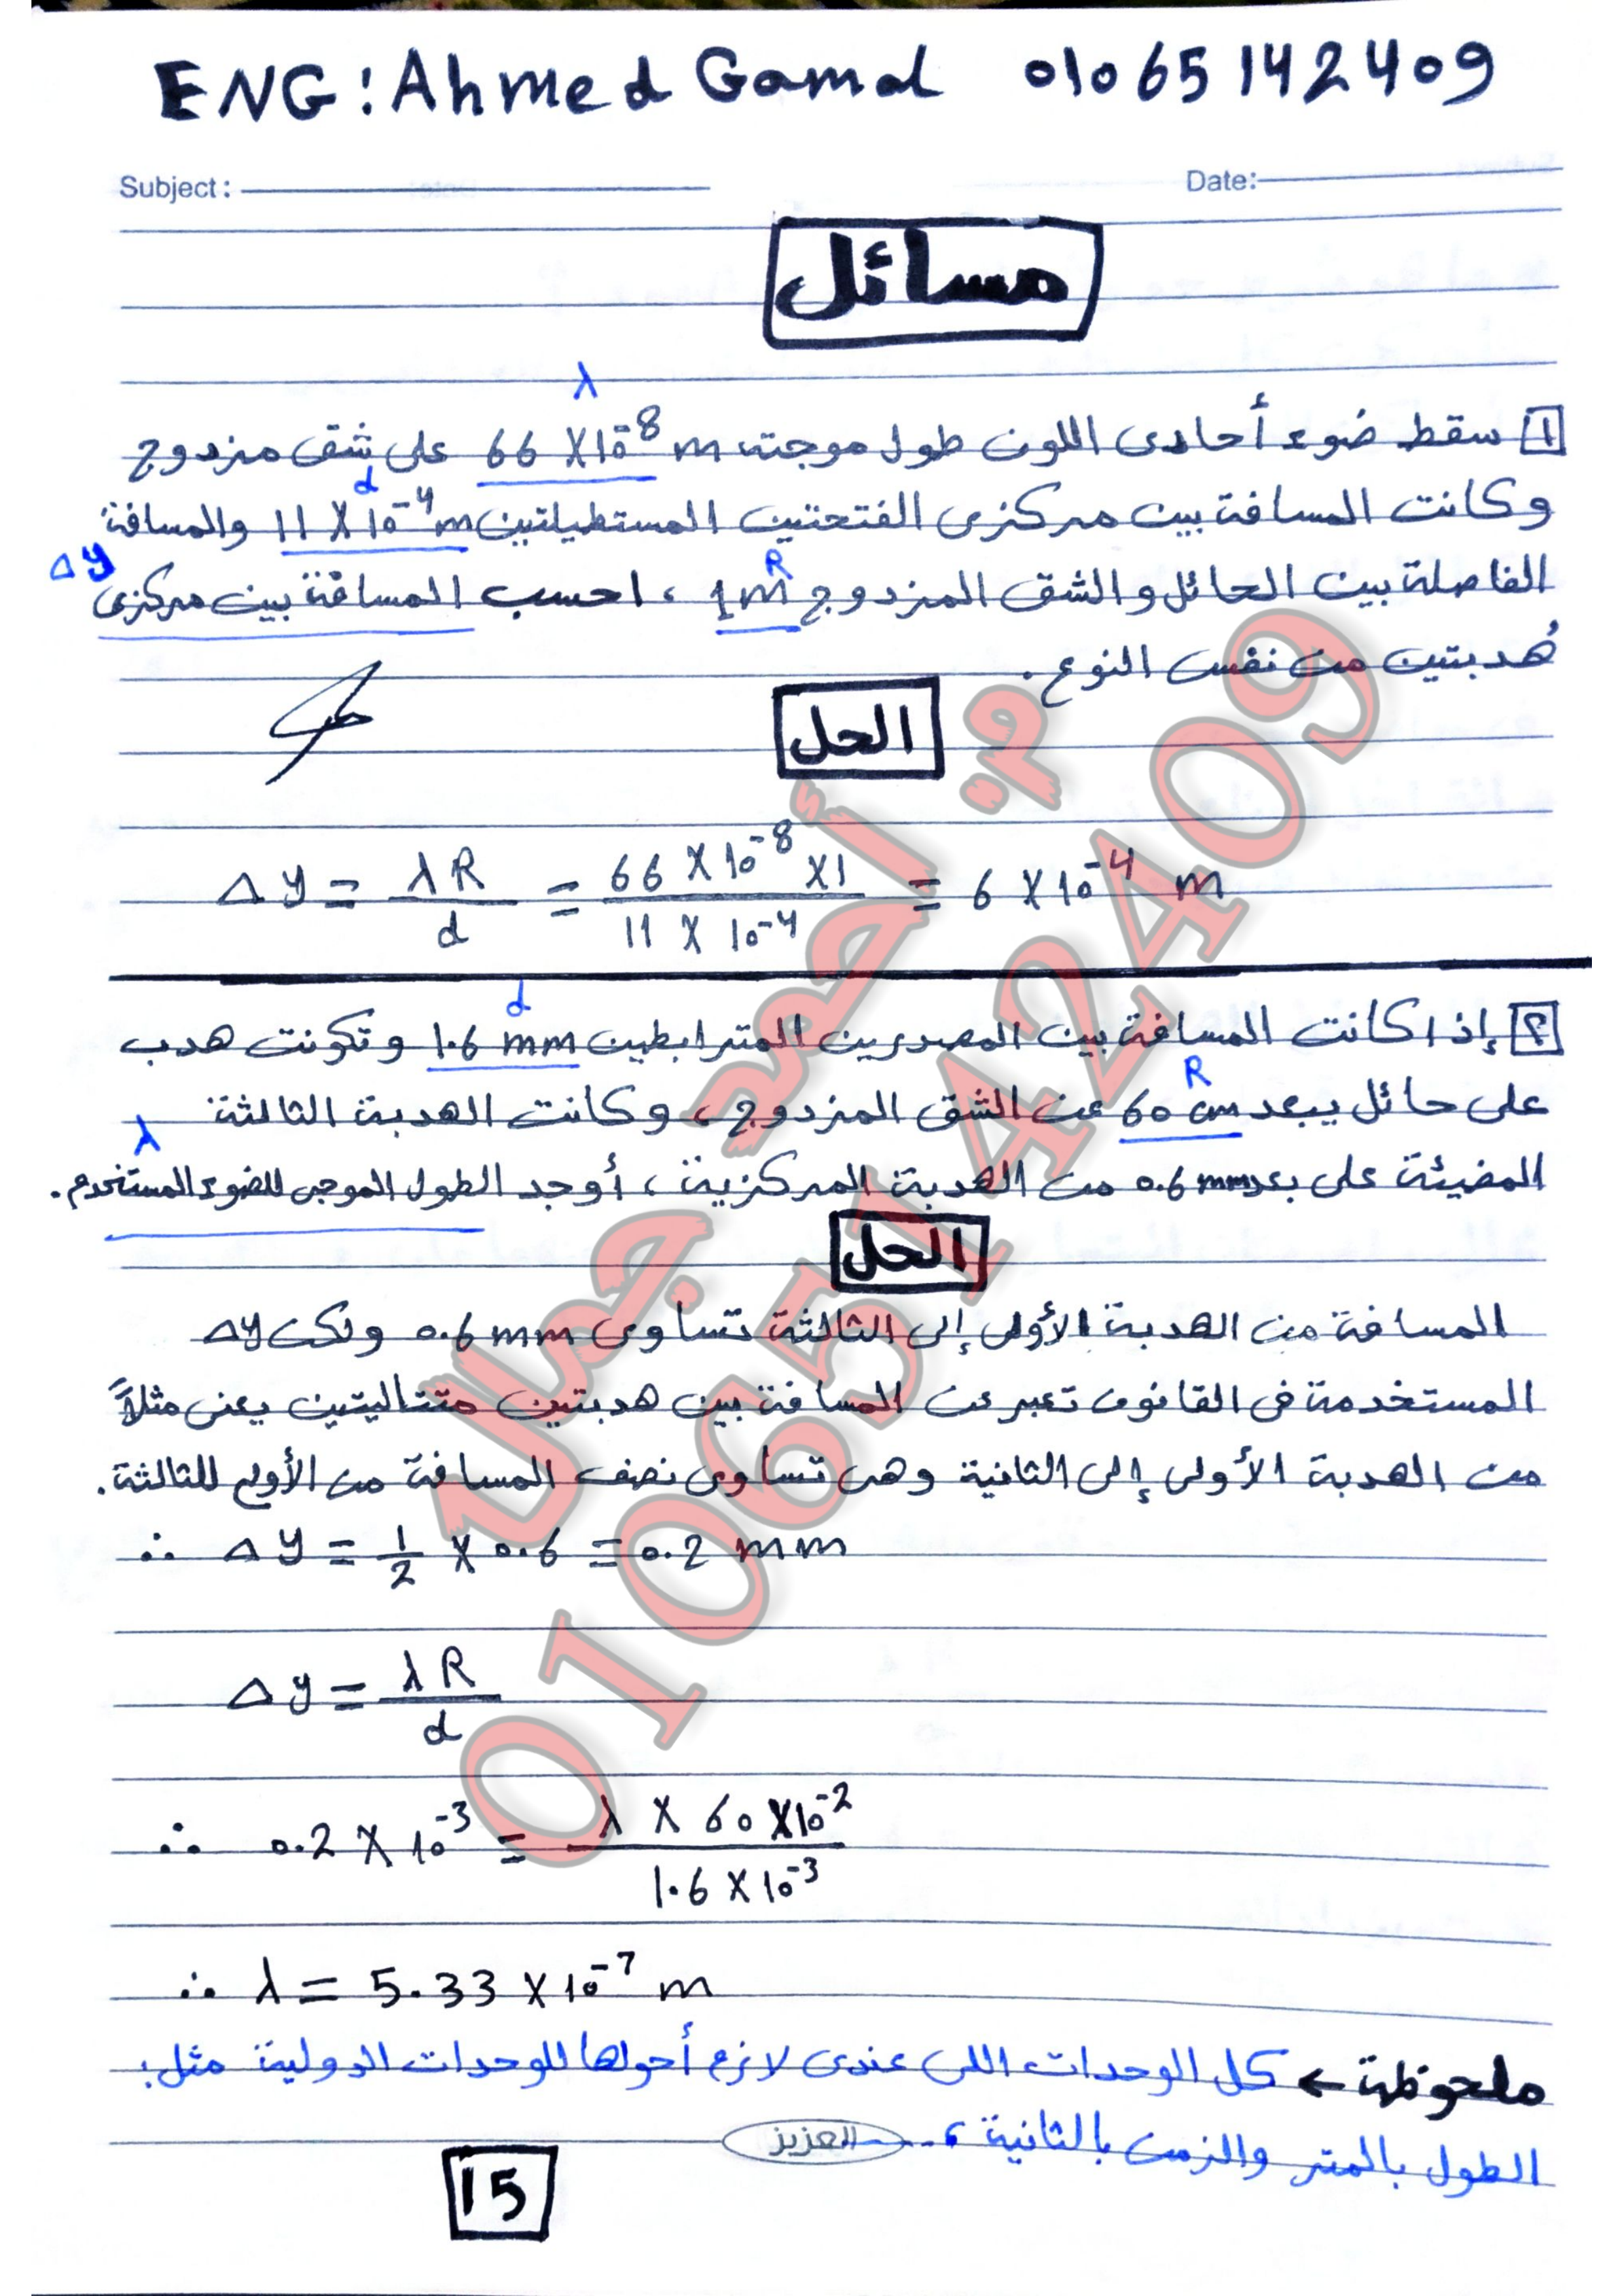 ENG: Ahmed Gamal 01065142409
Subject:
Date:
مسائل
λ
1 سقط ضوء أحادى اللون طول موجته 66 X 10⁻⁸ m على شق مزدوج
d
وكانت المسافة بين مركزى الفتحتين المستطيلتين 11 X 10⁻⁴ m والمسافة
R
Δy
الفاصلة بين الحائل والشق المزدوج 1m ، احسب المسافة بين مركزى
هُدبتين من نفس النوع.
الحل
Δy = λR / d = 66 X 10⁻⁸ X1 / 11 X 10⁻⁴ = 6 X 10⁻⁴ m
d
2 إذا كانت المسافة بين المصدرين المترابطين 1.6 mm وتكونت هدب
R
على حائل يبعد 60 cm عن الشق المزدوج، وكانت الهدبة الثالثة
λ
المضيئة على بعد 0.6 mm من الهدبة المركزية ، أوجد الطول الموجى للضوء المستخدم.
الحل
المسافة من الهدبة الأولى إلى الثالثة تساوى 0.6 mm ولكن Δy
المستخدمة فى القانون تعبر عن المسافة بين هدبتين متتاليتين يعنى مثلاً
من الهدبة الأولى إلى الثانية وهى تساوى نصف المسافة من الأولى للثالثة.
∴ Δy = 1/2 X 0.6 = 0.2 mm
Δy = λR / d
∴ 0.2 X 10⁻³ = λ X 60 X10⁻² / 1.6 X 10⁻³
∴ λ = 5.33 X 10⁻⁷ m
ملحوظة ← كل الوحدات اللى عندى لازم أحولها للوحدات الدولية مثل:
الطول بالمتر والزمن بالثانية ، ...
العزيز
15
م: أحمد جمال
01065142409